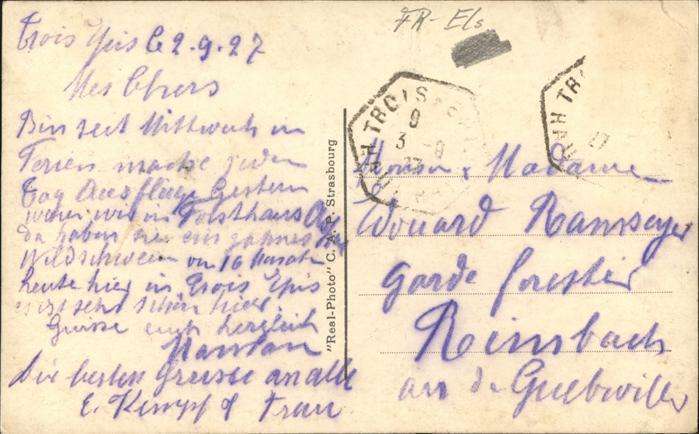 Trois Epis le 2.9.27
Mes Chers
Bin seit Mittwoch in
Ferien mache jeden
Tag Ausflüge Gestern
waren wir im Forsthaus
da haben sie ein zahmes
Wildschwein von 16 Monaten
heute hier in Trois Epis
ist sehr schön hier
Grüsse euch herzlich
Die besten Grüsse an alle
E. Kempf & Frau
FR-Els
TROIS
3 9
"Real-Photo" C. A. P. Strasbourg
Monsieur & Madame
Edouard Ramseyer
Garde forestier
Rimbach
arr de Guebwiller